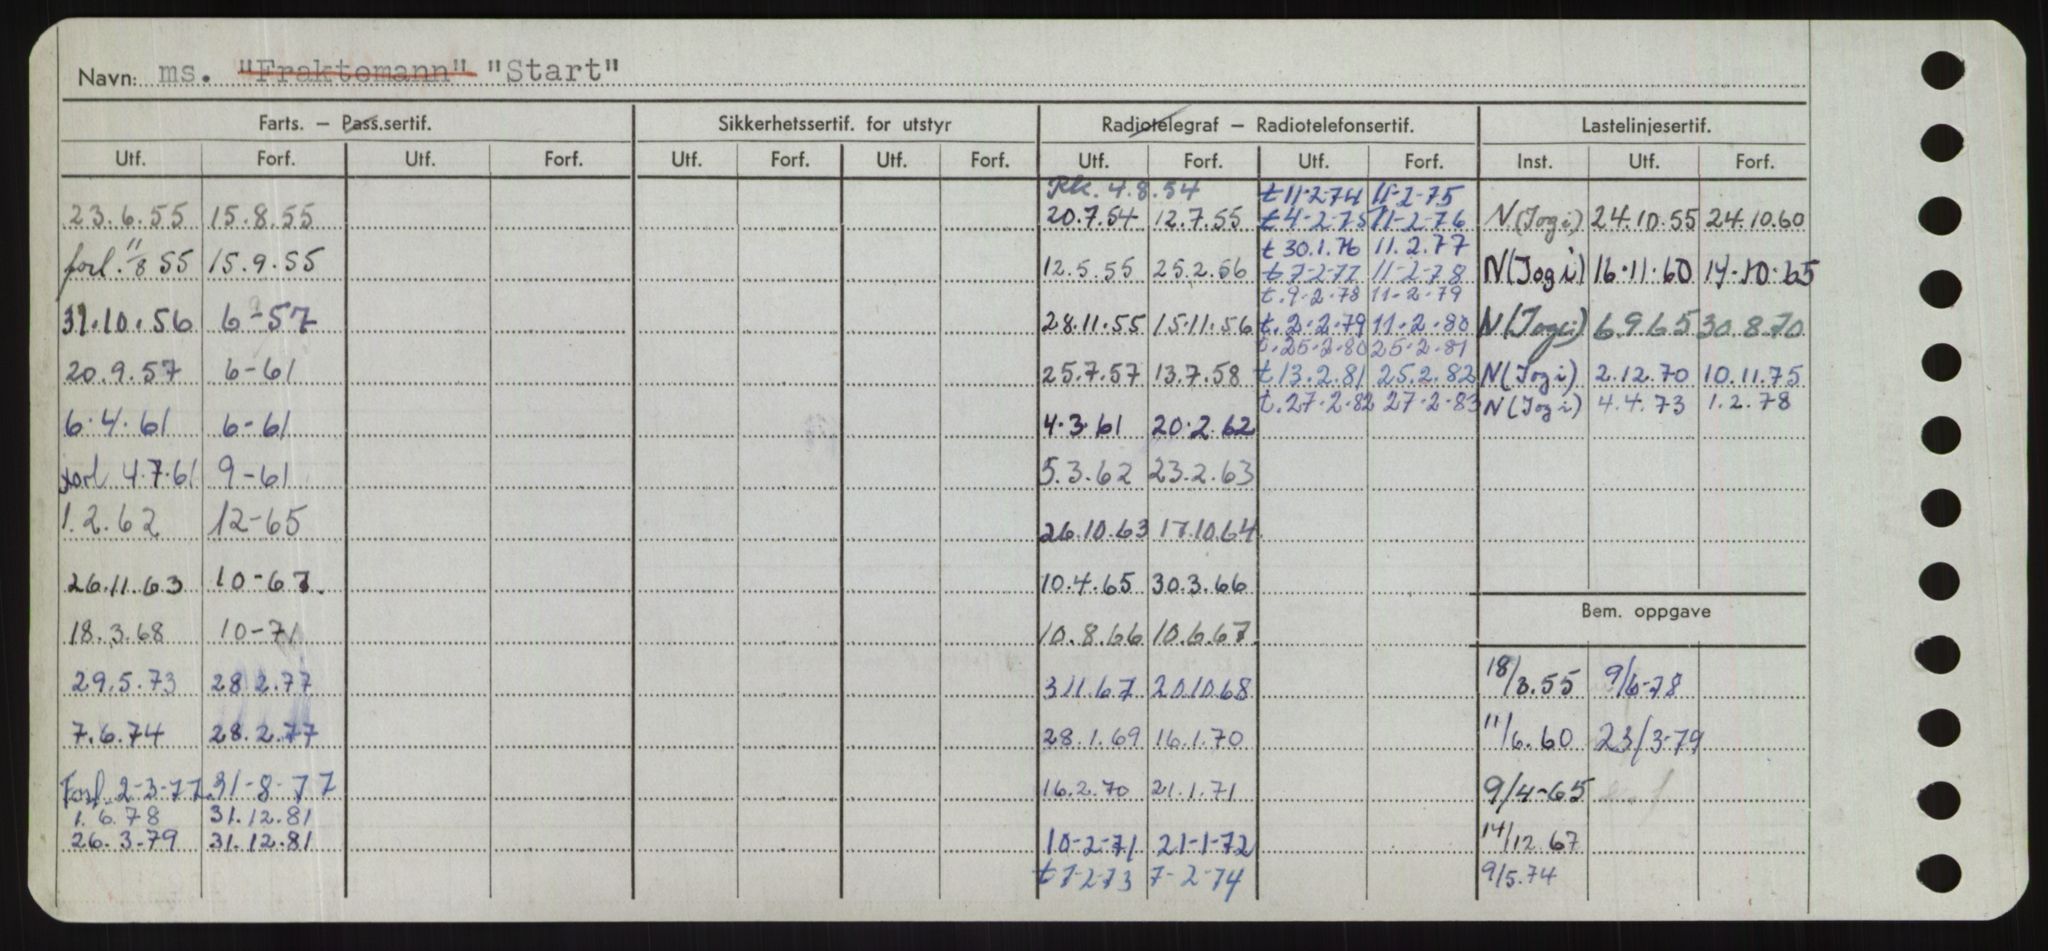 Navn: ms. "Fraktemann" "Start"
Farts. – Pass.sertif. Sikkerhetssertif. for utstyr Radiotelegraf – Radiotelefonsertif. Lastelinjesertif.
Utf. Forf. Utf. Forf. Utf. Forf. Utf. Forf. Utf. Forf. Utf. Forf. Inst. Utf. Forf.
Rk. 4.8.54 t 11-2-74 11-2-75
23.6.55 15.8.55 20.7.54 12.7.55 t 4-2-75 11-2-76 N(Jogi) 24.10.55 24.10.60
t 30.1.76 11.2.77
forl. 11/8 55 15.9.55 12.5.55 25.2.56 t 7-2-77 11-2-78 N(Jogi) 16.11.60 14.10.65
t. 9-2-78 11-2-79
31.10.56 6-57 28.11.55 15.11.56 t. 2-2-79 11-2-80 N(Jogi) 6.9.65 30.8.70
t. 25-2-80 25-2-81
20.9.57 6-61 25.7.57 13.7.58 t 13.2.81 25.2.82 N(Jogi) 2.12.70 10.11.75
t. 27-2-82 27-2-83 N(Jogi) 4.4.73 1.2.78
6.4.61 6-61 4.3.61 20.2.62
forl 4.7.61 9-61 5.3.62 23.2.63
1.2.62 12-65
26.10.63 17.10.64
26.11.63 10-67. 10.4.65 30.3.66
Bem. oppgave
18.3.68 10-71 10.8.66 10.6.67
29.5.73 28.2.77 3.11.67 20.10.68 18/3.55 9/6-78
7.6.74 28.2.77 28.1.69 16.1.70 11/6.60 23/3-79
Forl 2-3-77 31-8-77 16.2.70 21.1.71 9/4-65
1.6.78 31.12.81
26.3.79 31.12.81 10-2-71 21-1-72 14/12.67
t 7-2-73 7-2-74 9/5.74